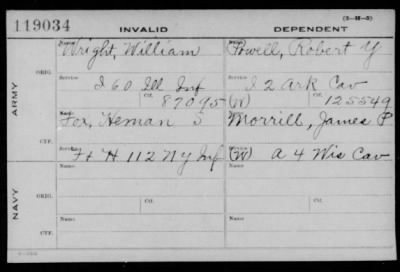 (3-M-5)
119034 INVALID DEPENDENT
Name Name
Wright, William Powell, Robert Y
ORIG.
Service Service
I 60 Ill Inf I 2 Ark Cav
Ctf. Ctf.
87095 (W) 125549
ARMY
Name Name
Fox, Heman S Morrill, James P
CTF.
Service Service
F+H 112 NY Inf (W) A 4 Wis Cav
NAVY
Name Name
ORIG.
Service Ctf. Service Ctf.
Name Name
CTF.
Service Service